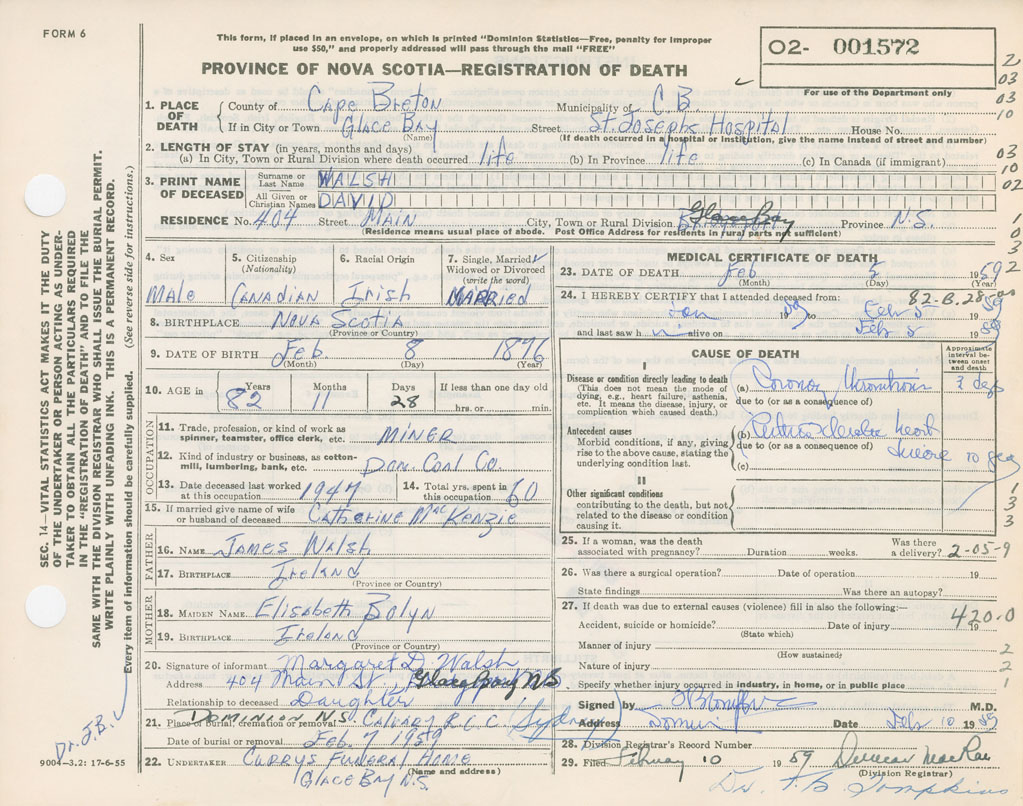 FORM 6
This form, if placed in an envelope, on which is printed "Dominion Statistics—Free, penalty for improper
use $50," and properly addressed will pass through the mail "FREE"
PROVINCE OF NOVA SCOTIA—REGISTRATION OF DEATH
02- 001572
For use of the Department only
2
03
03
10
03
10
02
1. PLACE OF DEATH County of Cape Breton Municipality of C B
If in City or Town Glace Bay Street St. Josephs Hospital House No.
(Name) (If death occurred in a hospital or institution, give the name instead of street and number)
2. LENGTH OF STAY (in years, months and days)
(a) In City, Town or Rural Division where death occurred life (b) In Province life (c) In Canada (if immigrant)
3. PRINT NAME OF DECEASED Surname or Last Name WALSH
All Given or Christian Names DAVID
RESIDENCE No. 404 Street MAIN City, Town or Rural Division Glace Bay Province N.S.
(Residence means usual place of abode. Post Office Address for residents in rural parts not sufficient)
1
0
3
4. Sex Male
5. Citizenship (Nationality) CANADIAN
6. Racial Origin Irish
7. Single, Married Widowed or Divorced (write the word) MARRIED
8. BIRTHPLACE NOVA SCOTIA
(Province or Country)
9. DATE OF BIRTH Feb. 8 1876
(Month) (Day) (Year)
10. AGE in Years 82 Months 11 Days 28 If less than one day old
hrs. or min.
OCCUPATION
11. Trade, profession, or kind of work as spinner, teamster, office clerk, etc. MINER
12. Kind of industry or business, as cotton-mill, lumbering, bank, etc. Dom. Coal Co.
13. Date deceased last worked at this occupation 1947 14. Total yrs. spent in this occupation 60
15. If married give name of wife or husband of deceased Catherine MacKenzie
FATHER
16. NAME James Walsh
17. BIRTHPLACE Ireland
(Province or Country)
MOTHER
18. MAIDEN NAME Elisabeth Bolyn
19. BIRTHPLACE Ireland
(Province or Country)
20. Signature of informant Margaret D. Walsh
Address 404 Main St Glace Bay NS
Relationship to deceased Daughter
21. Place of burial, cremation or removal DOMINION N.S. CALVARY R.C.C. Sydney
Date of burial or removal Feb. 7 1959
22. UNDERTAKER CURRYS FUNERAL HOME
GLACE BAY N.S. (Name and address)
MEDICAL CERTIFICATE OF DEATH
23. DATE OF DEATH Feb 5 1959 2
(Month) (Day) (Year)
82-B.28
24. I HEREBY CERTIFY that I attended deceased from:
Jan 1959 to Feb 5 1959
and last saw h i alive on Feb 5 1959
CAUSE OF DEATH
Approximate interval between onset and death
I
Disease or condition directly leading to death
(This does not mean the mode of dying, e.g., heart failure, asthenia, etc. It means the disease, injury, or complication which caused death.)
(a) Coronary Thrombosis 3 days
due to (or as a consequence of)
Antecedent causes
Morbid conditions, if any, giving rise to the above cause, stating the underlying condition last.
(b) heart
due to (or as a consequence of) 10
(c)
II
Other significant conditions contributing to the death, but not related to the disease or condition causing it.
1
3
3
25. If a woman, was the death associated with pregnancy? Duration weeks. Was there a delivery? 2-05-9
26. Was there a surgical operation? Date of operation 19
State findings Was there an autopsy?
27. If death was due to external causes (violence) fill in also the following:—
420.0
Accident, suicide or homicide? Date of injury 19
(State which)
Manner of injury 2
(How sustained)
Nature of injury 2
Specify whether injury occurred in industry, in home, or in public place 1
Signed by M.D.
Address Date Feb 10 1959
28. Division Registrar's Record Number
29. Filed February 10 1959 Duncan MacRae
(Division Registrar)
Dr. F. B. Tompkins
SEC. 14—VITAL STATISTICS ACT MAKES IT THE DUTY
OF THE UNDERTAKER OR PERSON ACTING AS UNDER-
TAKER TO OBTAIN ALL THE PARTICULARS REQUIRED
IN THE "REGISTRATION OF DEATH" AND TO FILE THE
SAME WITH THE DIVISION REGISTRAR WHO SHALL ISSUE THE BURIAL PERMIT.
WRITE PLAINLY WITH UNFADING INK. THIS IS A PERMANENT RECORD.
Every item of information should be carefully supplied. (See reverse side for instructions.)
Dr. F.B.
9004-3.2: 17-6-55